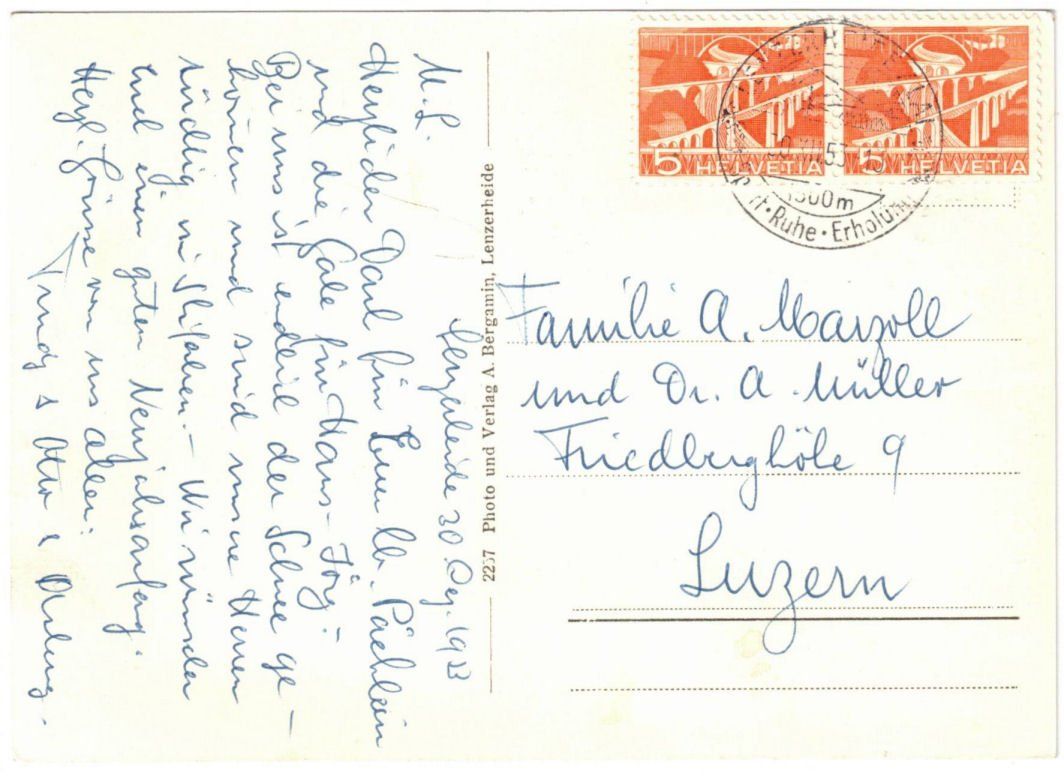 Lenzerheide 30. Dez. 1953
M. L.
Herzlichen Dank für Euer lb. Päcklein
und die Gabe für Hans-Jörg.
Bei uns ist endlich der Schnee ge-
kommen und sind unsere Herren
tüchtig im Skifahren. - Wir wünschen
Euch einen guten Neujahrsanfang.
Herzl. Grüsse von uns allen:
Trudy & Otto &
2257 Photo und Verlag A. Bergamin, Lenzerheide
5 HELVETIA 5 HELVETIA
LENZERHEIDE
30.XII.53
1500m
Sport · Ruhe · Erholung
Familie A. Marzoll
und Dr. A. Müller
Friedberghöhe 9
Luzern